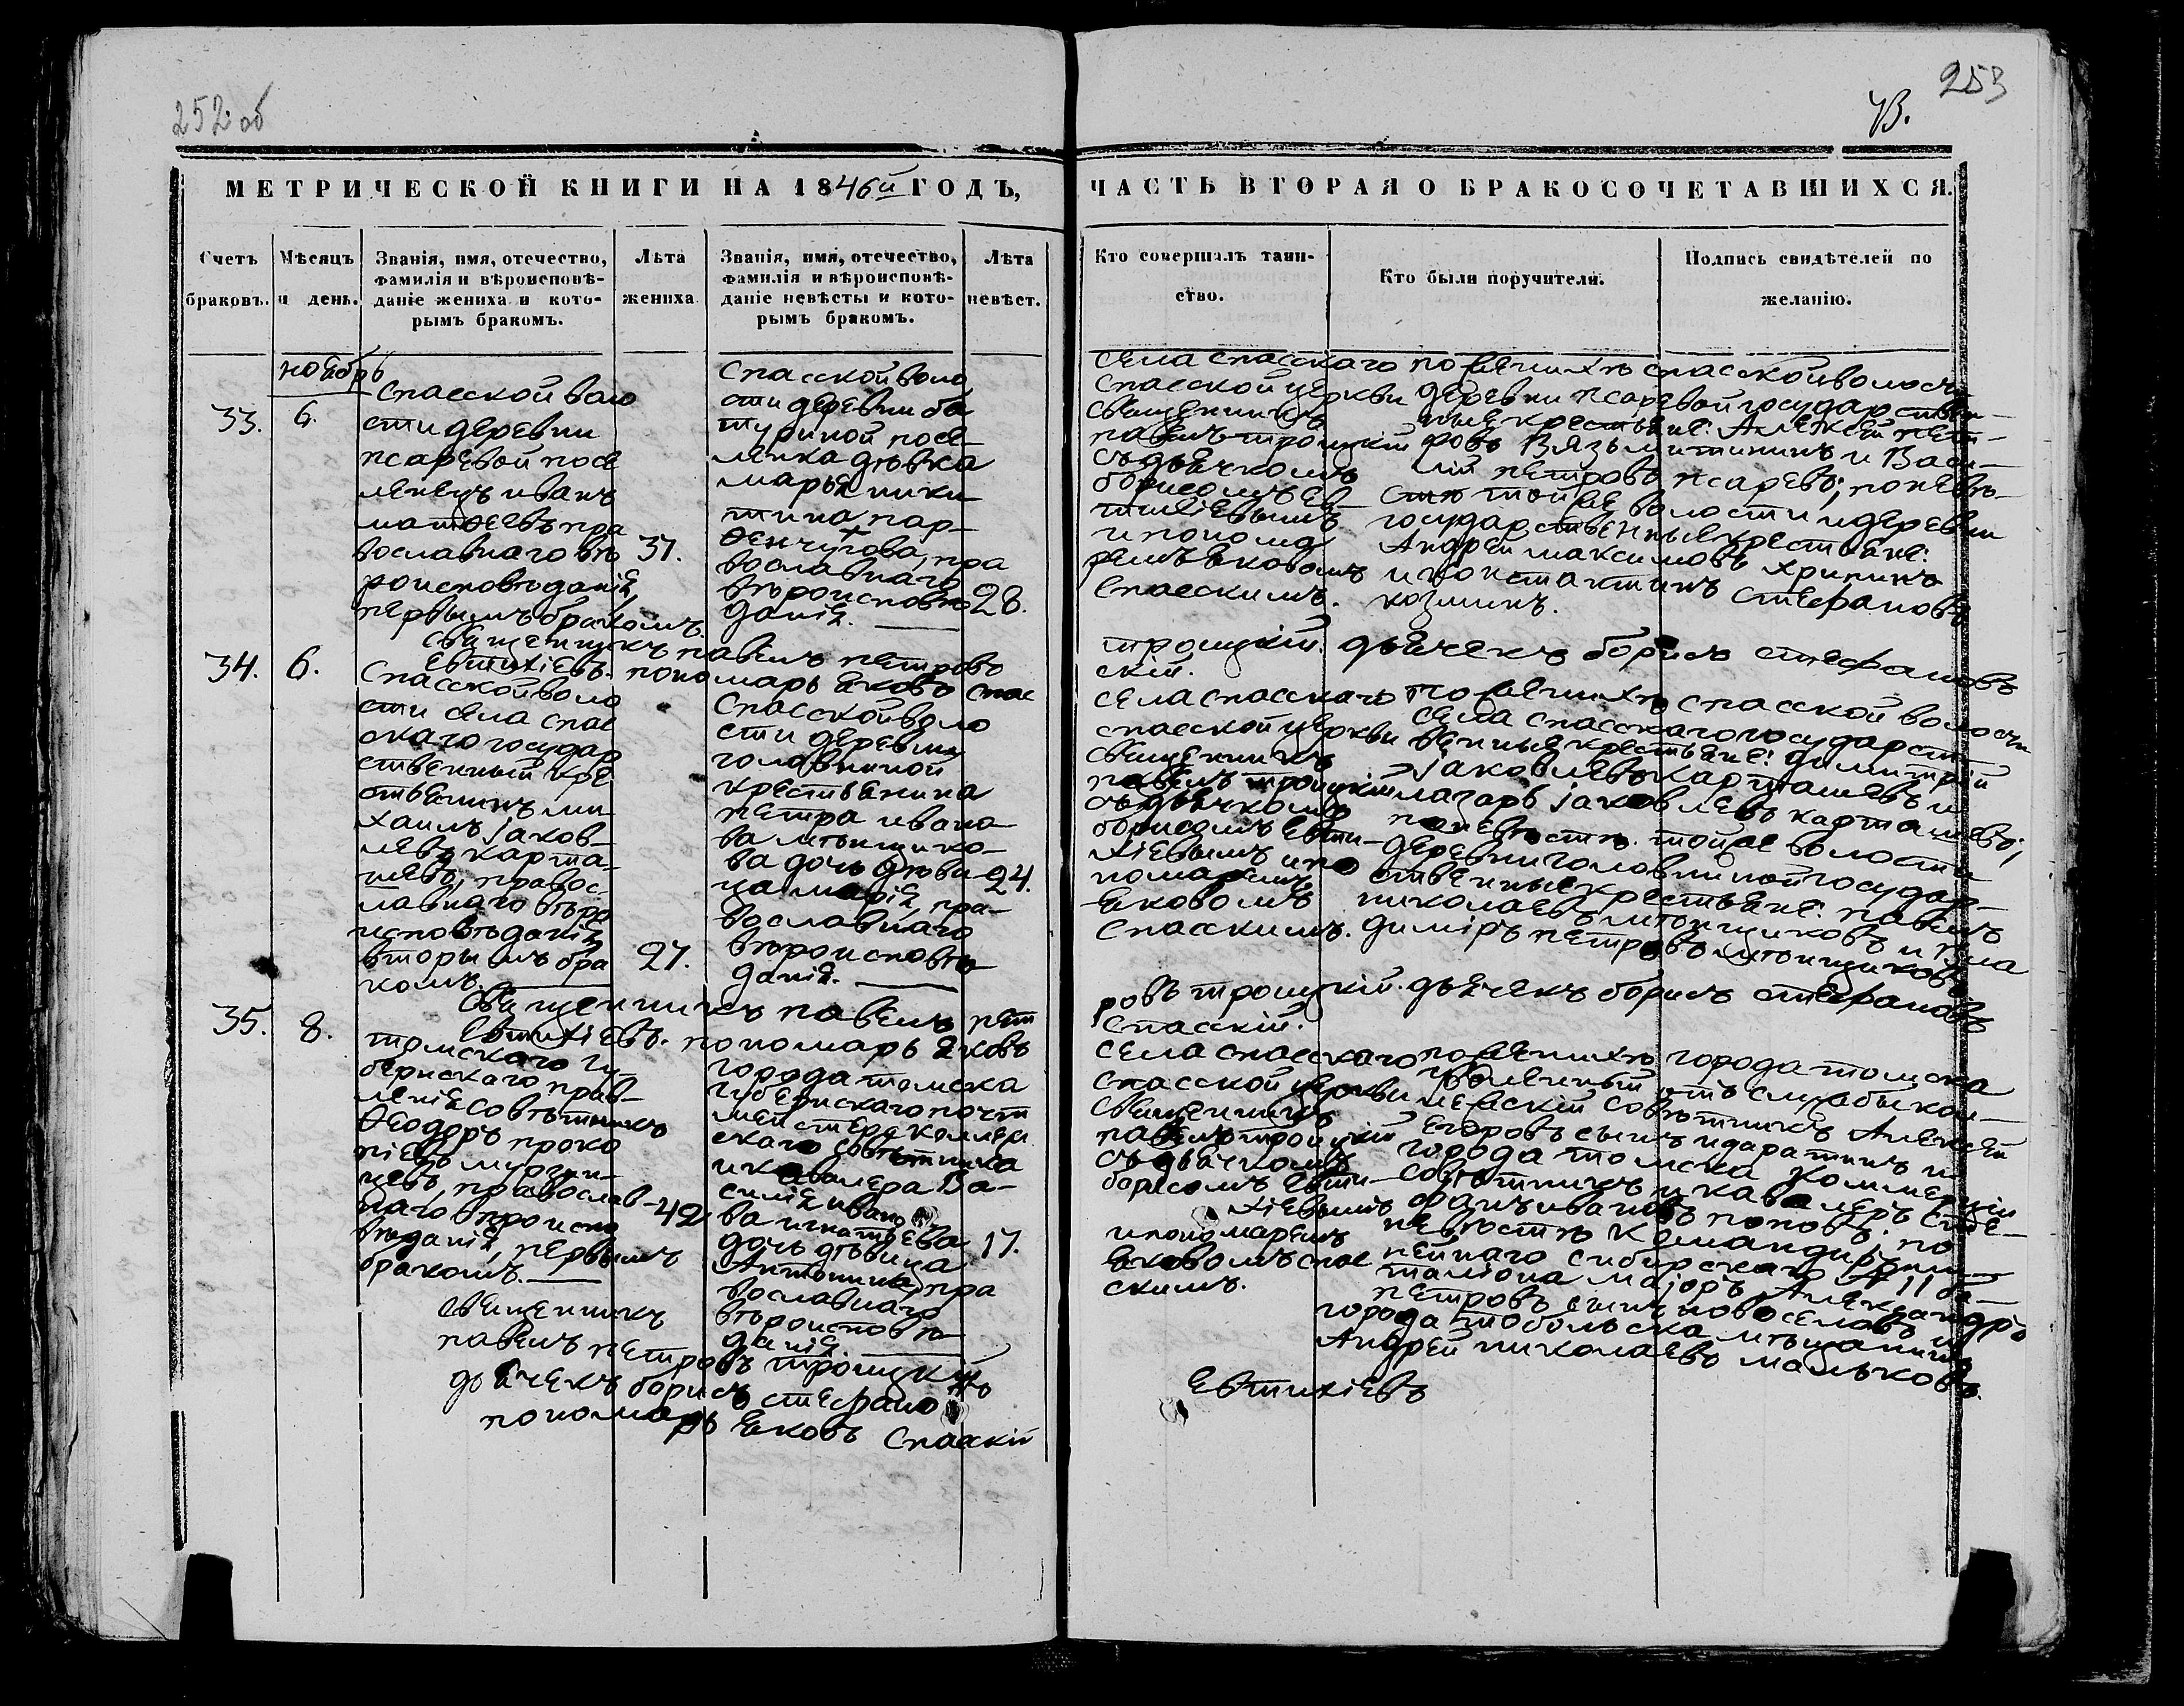 252 об
253
МЕТРИЧЕСКОЙ КНИГИ НА 1846й ГОДЪ,
ЧАСТЬ ВТОРАЯ О БРАКОСОЧЕТАВШИХСЯ.
Счетъ браковъ.
Мѣсяцъ и день.
Званія, имя, отечество,
фамилія и вѣроисповѣ-
даніе жениха и кото-
рымъ бракомъ.
Лѣта жениха
Званія, имя, отечество,
фамилія и вѣроисповѣ-
даніе невѣсты и кото-
рымъ бракомъ.
Лѣта невѣст.
Кто совершалъ таин-
ство.
Кто были поручители.
Подпись свидѣтелей по
желанію.
ноябрь
33.
6.
Спасской воло
сти деревни
псаревой посе
ленецъ иванъ
матѳеевъ пра
вославнаго вѣ
роисповѣданія,
первымъ бракомъ.
37.
Спасской воло
сти деревни ба
туриной посе-
ленка дѣвка
марья ники
тина пар-
ѳенчукова, пра
вославнаго
вѣроисповѣ
данія.
28.
села спасскаго
спасской церкви
священникъ
павелъ троицкій
съ дьячкомъ
борисомъ ев-
тихіевымъ
и понома
ремъ яковомъ
спасскимъ.
по женихѣ спасской волости
деревни псаревой государствен-
ные крестьяне: Алексей пет-
ровъ Вязьмитинъ и Васи-
лій петровъ псаревъ; по невѣ-
стѣ той же волости и деревни
государственные крестьяне:
Андрей максимовъ хрипинъ
и константинъ стефановъ
козминъ.
священникъ павелъ петровъ троицкій. дьячекъ борисъ стефановъ
евтихіевъ. пономарь яковъ спасскій.
34.
6.
Спасской воло
сти села спас
скаго государ
ственный кре
стьянинъ ми
хаилъ јаков-
левъ карта-
шевъ, правос-
лавнаго вѣро
исповѣданія
вторымъ бра
комъ.
27.
Спасской воло
сти деревни
головниной
крестьянина
петра ивано
ва мѣнщико-
ва дочь дѣви
ца марія, пра-
вославнаго
вѣроисповѣ
данія.
24.
села спасскаго
спасской церкви
священникъ
павелъ троицкій
съ дьячкомъ
борисомъ евти-
хіевымъ и по
номаремъ
яковомъ
спасскимъ.
по женихѣ спасской волости
села спасскаго государст
венные крестьяне: димитрій
јаковлевъ карташевъ и
лазарь јаковлевъ карташевъ;
по невѣстѣ той же волости
деревни головниной государ-
ственные крестьяне: павелъ
николаевъ мѣнщиковъ и вла
диміръ петровъ мѣнщиковъ
священникъ павелъ петровъ троицкій. дьячекъ борисъ стефановъ
евтихіевъ. пономарь яковъ спасскій.
35.
8.
томскаго гу-
бернскаго прав-
ленія совѣтникъ
ѳеодоръ проко
піевъ
православ-
наго вѣроиспо
вѣданія, первымъ
бракомъ.
42
города томска
губернскаго почт
мейстера коллеж
скаго совѣтника
и кавалера Ва-
силія ивано
ва игнатьева
дочь дѣвица
Антонина, пра
вославнаго
вѣроисповѣ
данія.
17.
села спасскаго
спасской церкви
священникъ
павелъ троицкій
съ дьячкомъ
борисомъ евти-
хіевымъ
и пономаремъ
яковомъ спас
скимъ.
по женихѣ города томска
уволенный отъ службы кол-
лежскій совѣтникъ Алексей
егоровъ сынъ и
города томска Коммерціи
совѣтникъ и кавалеръ сте-
фанъ ивановъ поповъ. по
невѣстѣ Командиръ линѣ
нейнаго сибирскаго № 11 ба-
таліона маіоръ Александръ
петровъ сынъ новоселовъ и
города тобольска мѣщанинъ
Андрей николаевъ мальковъ.
священникъ
павелъ петровъ троицкій
дьячекъ борисъ стефановъ евтихіевъ
пономарь яковъ спасскій